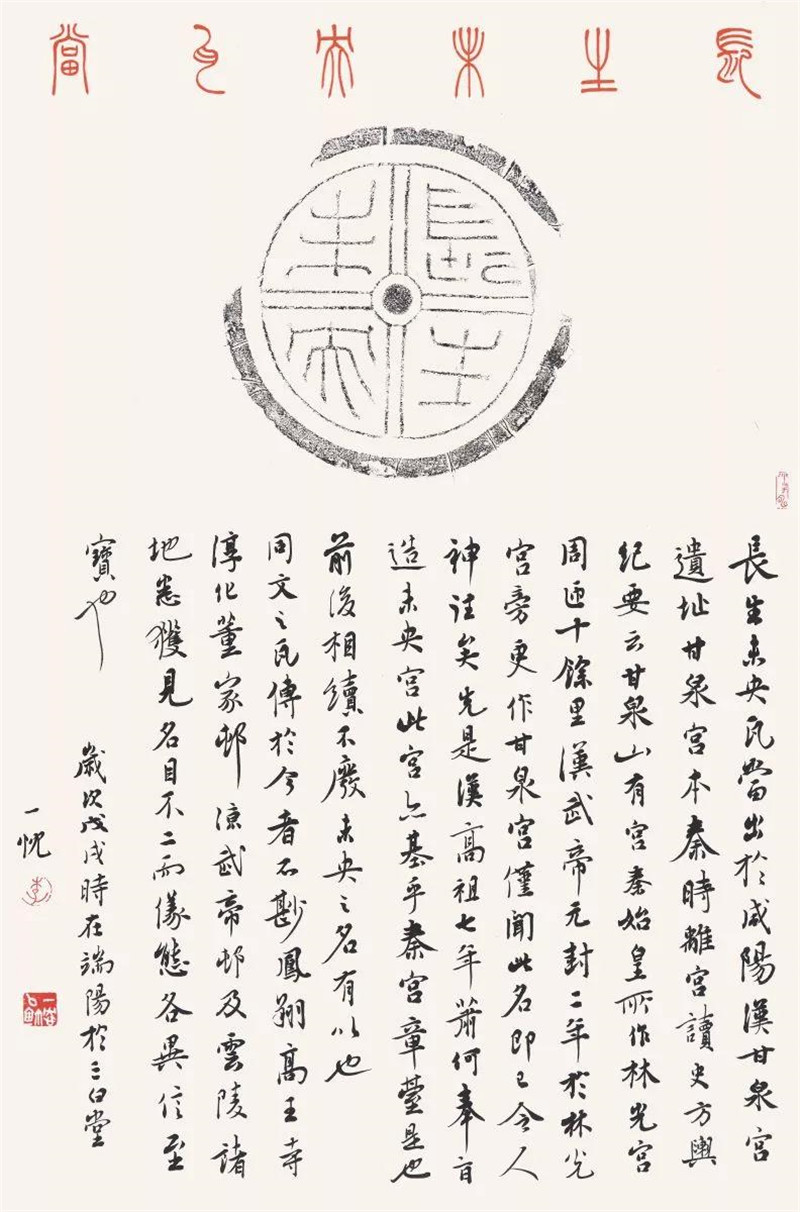 長生未央瓦當
長生未央
長生未央瓦當出於咸陽漢甘泉宮
遺址甘泉宮本秦時離宮讀史方輿
紀要云甘泉山有宮秦始皇所作林光宮
周匝十餘里漢武帝元封二年於林光
宮旁更作甘泉宮僅聞此名即已令人
神往矣先是漢高祖七年蕭何奉旨
造未央宮此宮亦基乎秦宮章臺是也
前後相續不廢未央之名有以也
同文之瓦傳於今者不尠鳳翔高王寺
淳化董家邨涼武帝邨及雲陵諸
地悉獲見名目不二而儀態各異信至
寶也
歲次戊戌時在端陽於三白堂
一忱
李